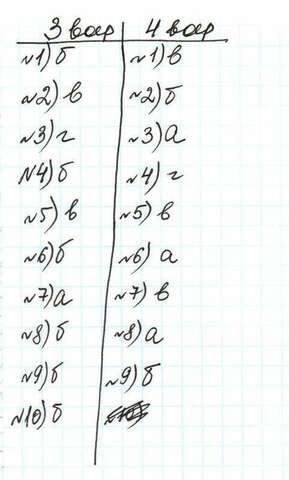 3 вар 4 вар
№1) б №1) в
№2) в №2) б
№3) г №3) а
№4) б №4) г
№5) в №5) в
№6) б №6) а
№7) а №7) в
№8) б №8) а
№9) б №9) б
№10) б